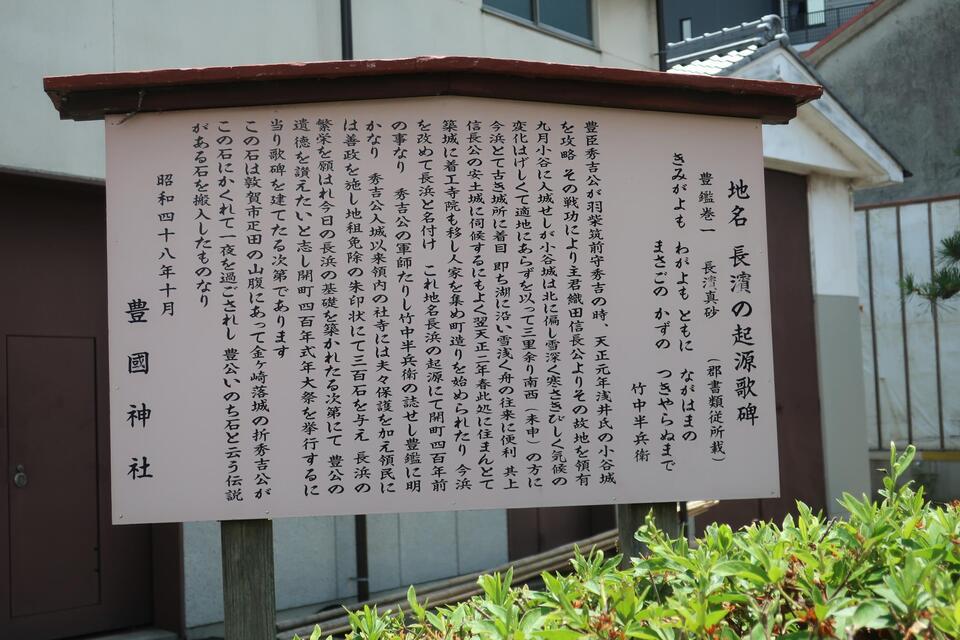 地名 長濱の起源歌碑
豊鑑巻一 長濱真砂 (郡書類従所載)
きみがよも わがよもともに ながはまの
まさごの かずの つきやらぬまで
竹中半兵衛
豊臣秀吉公が羽柴筑前守秀吉の時、天正元年浅井氏の小谷城
を攻略 その戦功により主君織田信長公よりその故地を領有
九月小谷に入城せしが小谷城は北に偏し雪深く寒さきびしく気候の
変化はげしくて適地にあらずを以って三里余り南西(未申)の方に
今浜とて古き城所に着目 即ち湖に沿い雪浅く舟の往来に便利 其上
信長公の安土城に伺候するにもよく翌天正二年春此処に住まんとて
築城に着工寺院も移し人家を集め町造りを始められたり 今浜
を改めて長浜と名付け これ地名長浜の起源にて開町四百年前
の事なり 秀吉公の軍師たりし竹中半兵衛の誌せし豊鑑に明
かなり 秀吉公入城以来領内の社寺には夫々保護を加え領民に
は善政を施し地租免除の朱印状にて三百石を与え 長浜の
繁栄を願はれ今日の長浜の基礎を築かれたる次第にて 豊公の
遺徳を讃えたいと志し開町四百年式年大祭を挙行するに
当り歌碑を建てたる次第であります
この石は敦賀市疋田の山腹にあって金ヶ崎落城の折秀吉公が
この石にかくれて一夜を過ごされし 豊公いのち石と云う伝説
がある石を搬入したものなり
昭和四十八年十月
豊國神社